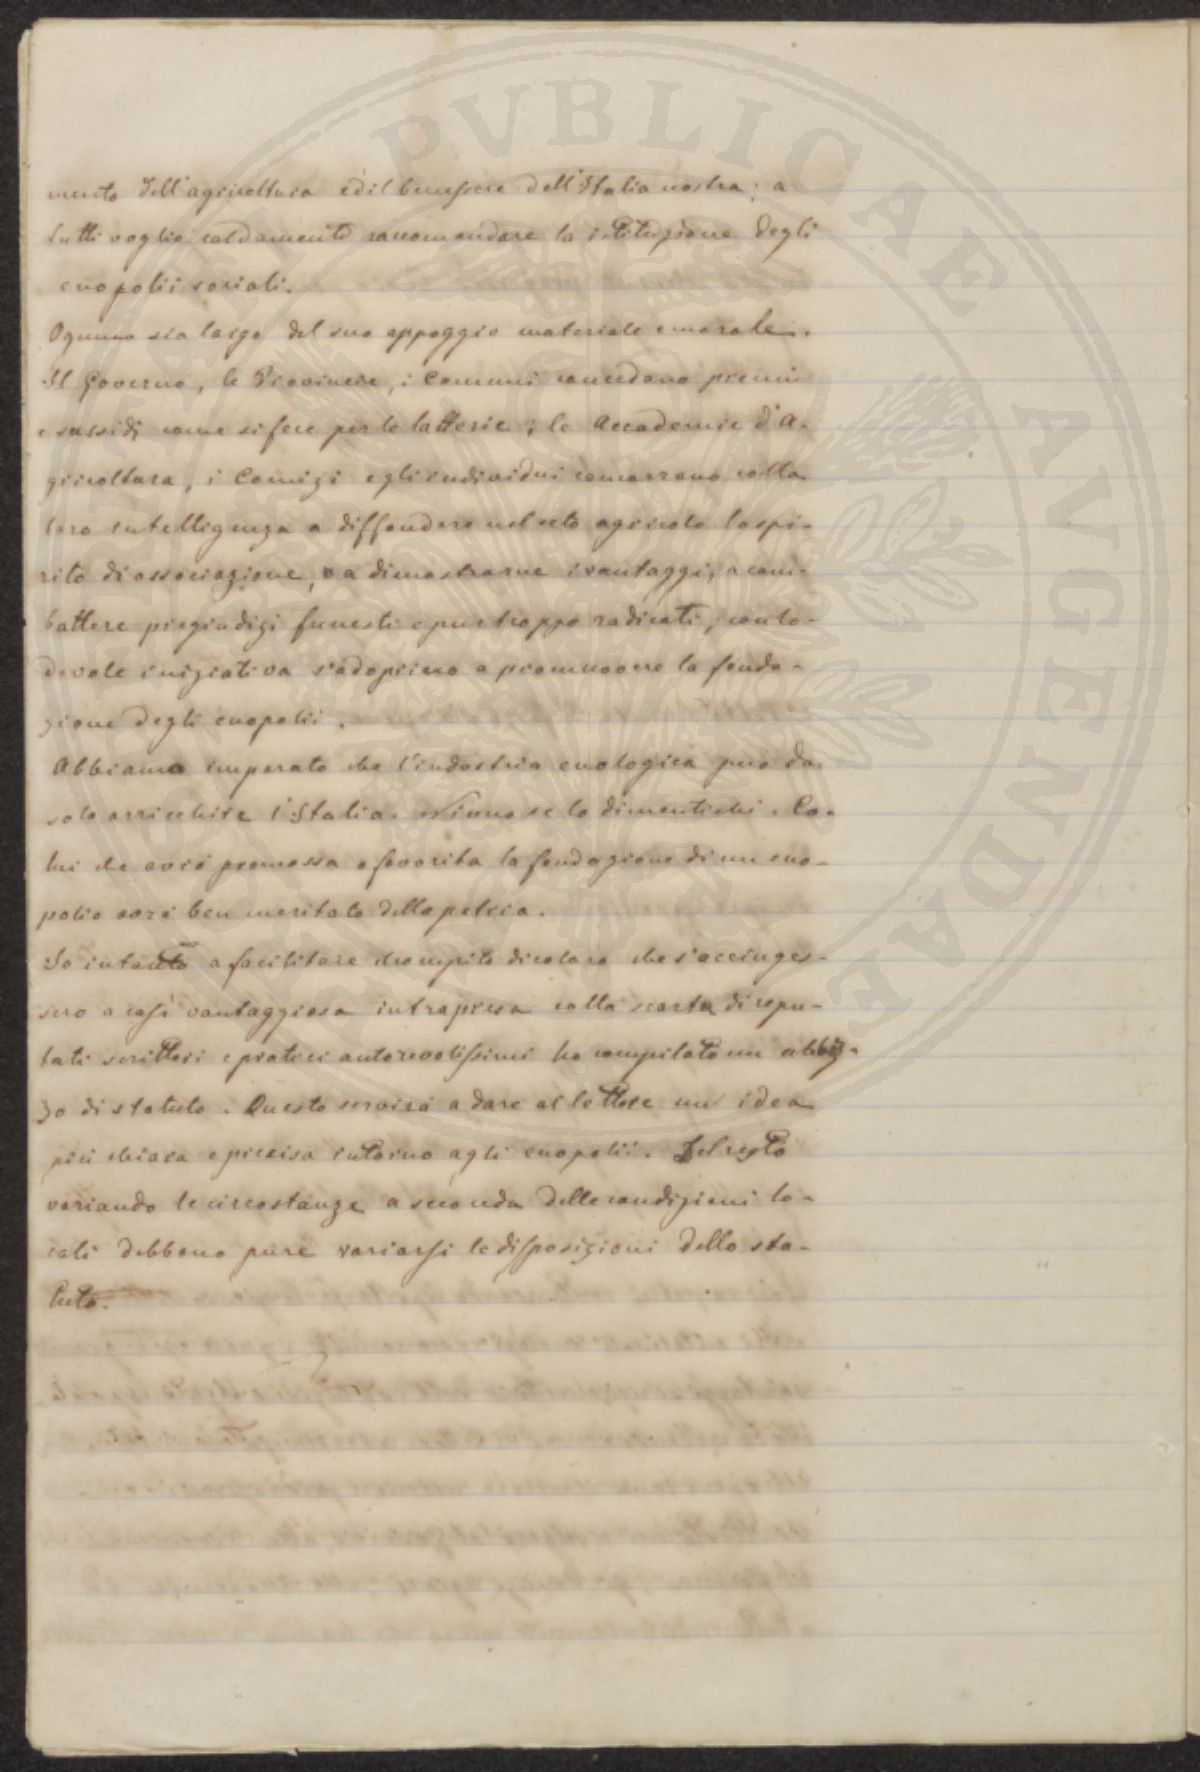 PVBLICAE AVGENDAE
mento dell'agricoltura ed il benessere dell'Italia nostra; a
tutti voglio caldamente raccomandare la istituzione degli
enopolii sociali.
Ognuno sia largo del suo appoggio materiale e morale.
Il Governo, le Provincie, i Comuni concedano premii
e sussidi come si fece per le latterie; le Accademie d'A-
gricoltura, i Comizi e gli individui concorrano colla
loro intelligenza a diffondere nel ceto agricolo lo spi-
rito di associazione, a dimostrarne i vantaggi, a com-
battere pregiudizi funesti e pur troppo radicati, con lo-
devole iniziativa s'adoprino a promuovere la fonda-
zione degli enopolii.
Abbiamo imparato che l'industria enologica può da
sola arricchire l'Italia. Niuno se lo dimentichi. Co-
lui che avrà promossa e favorita la fondazione di un eno-
polio avrà ben meritato della patria.
Io intanto a facilitare il compito di coloro che s'accinges-
sero a così vantaggiosa intrapresa colla scorta di repu-
tati scrittori e pratici autorevolissimi ho compilato un abboz-
zo di statuto. Questo servirà a dare al lettore un idea
più chiara e precisa intorno agli enopolii. Del resto
variando le circostanze a seconda delle condizioni lo-
cali debbono pure variarsi le disposizioni dello sta-
tuto.